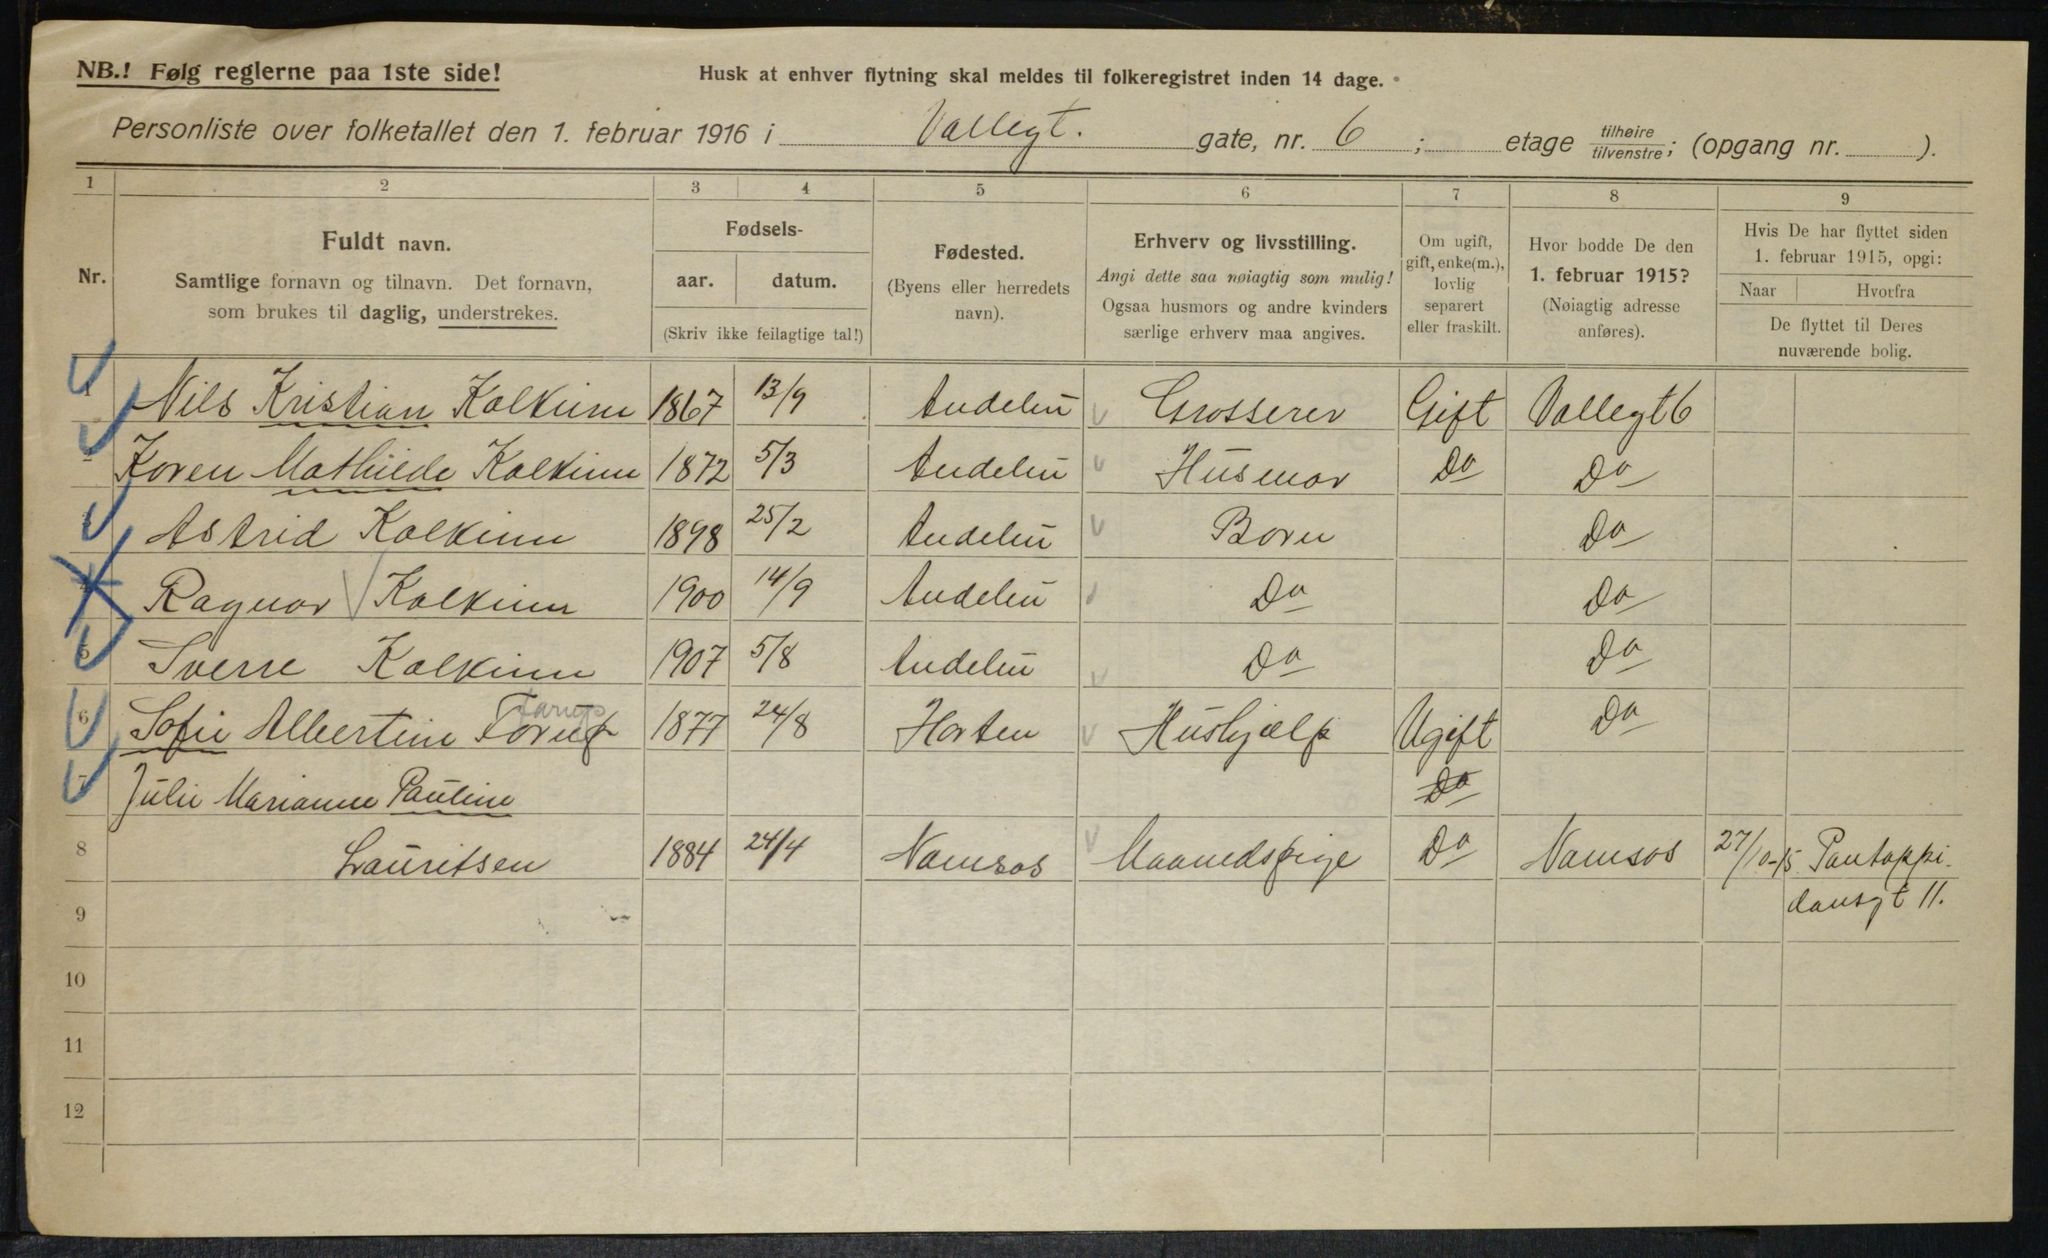 NB.! Følg reglerne paa 1ste side!
Husk at enhver flytning skal meldes til folkeregistret inden 14 dage.
Personliste over folketallet den 1. februar 1916 i Vallegt. gate, nr. 6 ; etage tilhøire tilvenstre; (opgang nr. ).
1 2 3 4 5 6 7 8 9
Nr.
Fuldt navn.
Samtlige fornavn og tilnavn. Det fornavn,
som brukes til daglig, understrekes.
Fødsels-
aar. datum.
(Skriv ikke feilagtige tal!)
Fødested.
(Byens eller herredets
navn).
Erhverv og livsstilling.
Angi dette saa nøiagtig som mulig!
Ogsaa husmors og andre kvinders
særlige erhverv maa angives.
Om ugift,
gift, enke(m.),
lovlig
separert
eller fraskilt.
Hvor bodde De den
1. februar 1915?
(Nøiagtig adresse
anføres).
Hvis De har flyttet siden
1. februar 1915, opgi:
Naar Hvorfra
De flyttet til Deres
nuværende bolig.
1 Nils Kristian Kalkinn 1867 13/9 Andelu Grosserer Gift Vallegt 6
2 Karen Mathilde Kalkinn 1872 5/3 Andelu Husmor Do Do
3 Astrid Kalkinn 1898 25/2 Andelu Born Do
4 Ragnar Kalkinn 1900 14/9 Andelu Do Do
5 Sverre Kalkinn 1907 5/8 Andelu Do Do
Farup
6 Sofie Albertine Forup 1877 24/8 Horten Hushjælp Ugift Do
7 Julie Marianne Pauline Do
8 Lauritsen 1884 24/4 Namsos Maanedspige Do Namsos 27/10-15 Pantoppi-
9 dansgt 11.
10
11
12